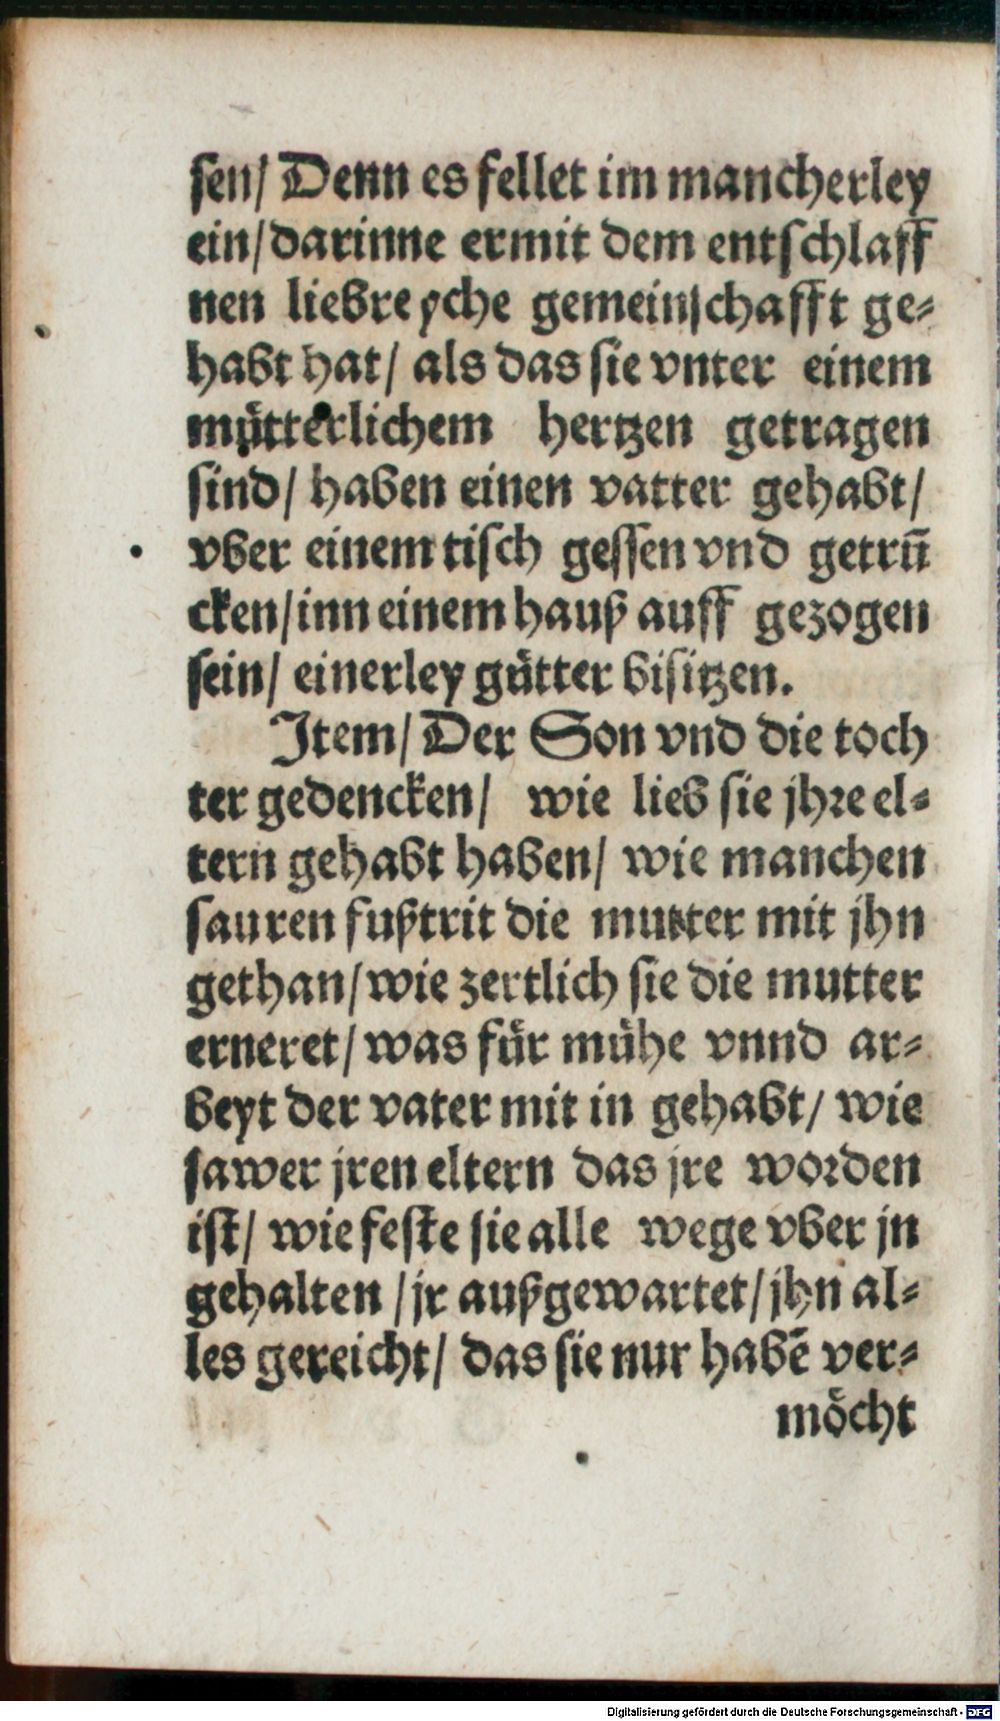 sen/ Denn es fellet im mancherley
ein/darinne ermit dem entschlaff
nen liebreyche gemeinschafft ge-
habt hat/ als das sie vnter einem
mütterlichem hertzen getragen
sind/ haben einen vatter gehabt/
vber einem tisch gessen vnd getrūcken/inn einem hauß auff gezogen
sein/ einerley gütter bisitzen.
Item/ Der Son vnd die toch
ter gedencken/ wie lieb sie jhre el-
tern gehabt haben/ wie manchen
sauren fußtrit die mutter mit jhn
gethan/wie zertlich sie die mutter
erneret/was für mühe vnnd ar-
beyt der vater mit in gehabt/ wie
sawer jren eltern das jre worden
ist/ wie feste sie alle wege vber jn
gehalten /jr außgewartet/jhn al-
les gereicht/ das sie nur habē ver-
möcht
Digitalisierung gefördert durch die Deutsche Forschungsgemeinschaft - DFG